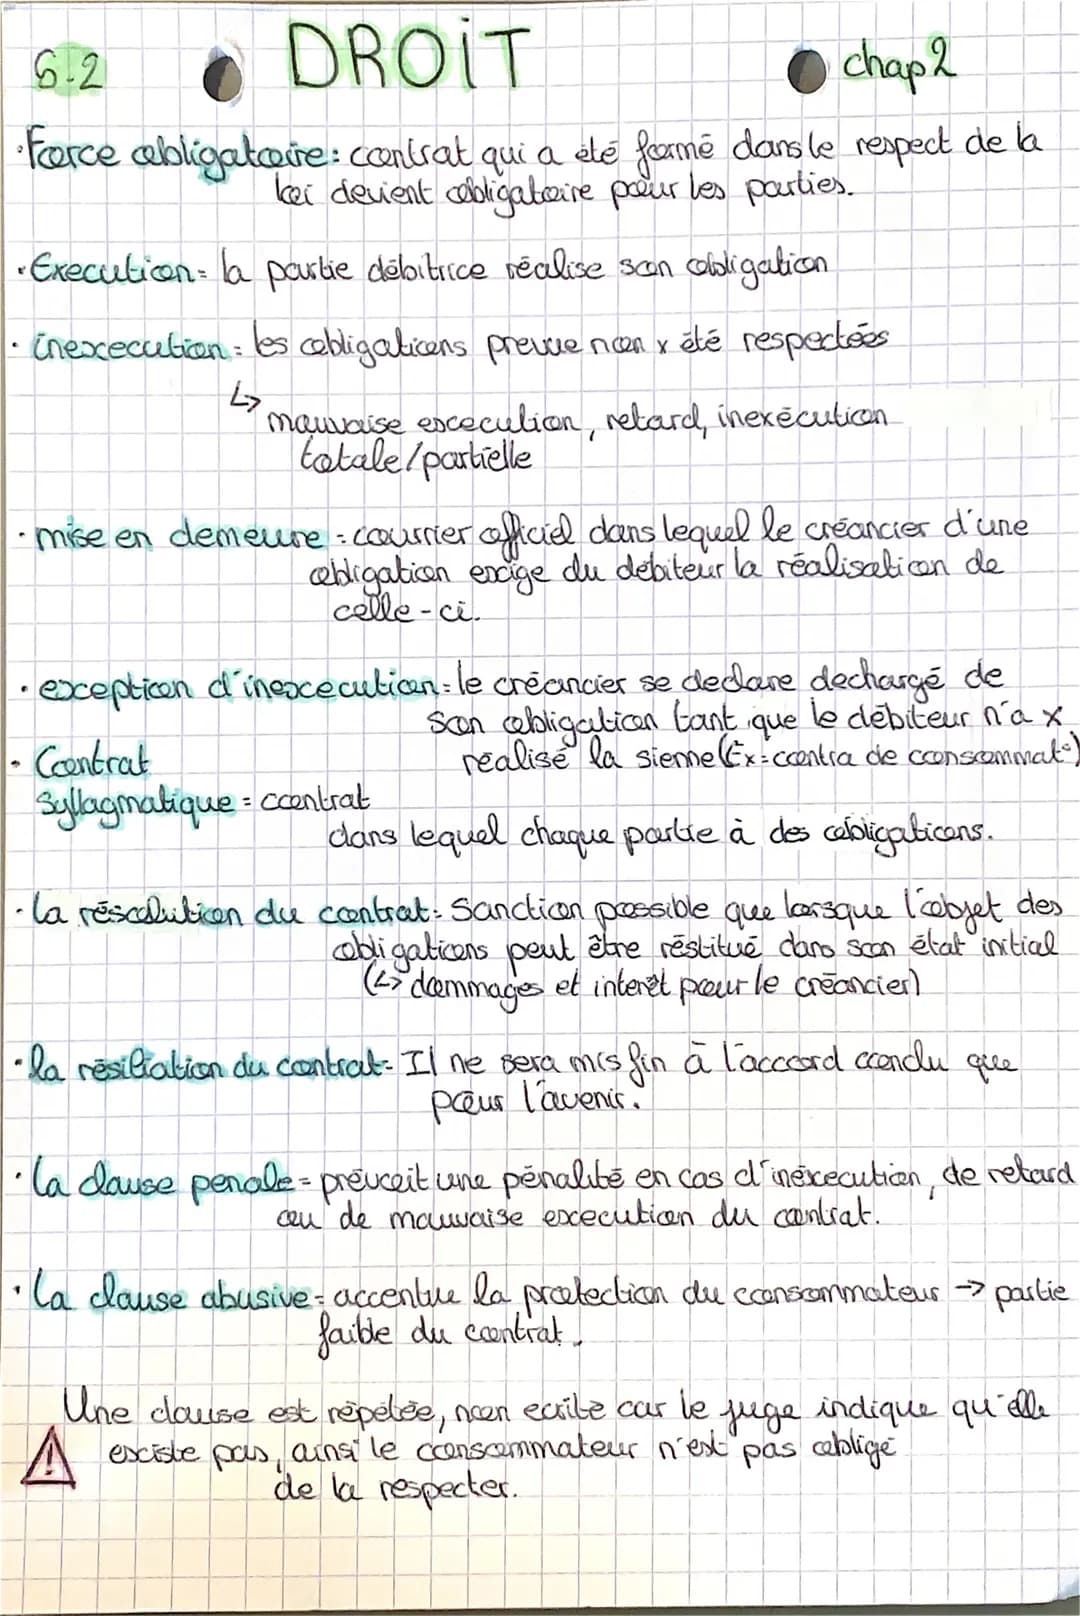 6.2 DROIT chap 2
· Force obligatoire : contrat qui a été formé dans le respect de la
loi devient obligatoire pour les parties.
· Execution = la partie débitrice réalise son obligation
· inexecution = les obligations prevue non x été respectées
↳ mauvaise execution, retard, inexécution
totale/partielle
· mise en demeure = courrier officiel dans lequel le créancier d'une
obligation exige du débiteur la réalisation de
celle-ci.
· exception d'inexecution = le créancier se declare dechargé de
son obligation tant que le débiteur n'a x
réalisé la sienne (Ex = contra de consommat°)
· Contrat
Syllagmatique = contrat
dans lequel chaque partie à des obligations.
· la résolution du contrat = Sanction possible que lorsque l'objet des
obligations peut être réstitué dans son état initial
(↳ dommages et interêt pour le créancier)
· la résiliation du contrat = Il ne sera mis fin à l'acccord conclu que
pour l'avenir.
· la clause penale = prévoit une pénalité en cas d'inéxecution, de retard
ou de mauvaise execution du contrat.
· la clause abusive = accentue la protection du consommateur → partie
faible du contrat.
Une clause est répétée, non ecrite car le juge indique qu'elle
existe pas, ainsi le consommateur n'est pas obligé
de la respecter.